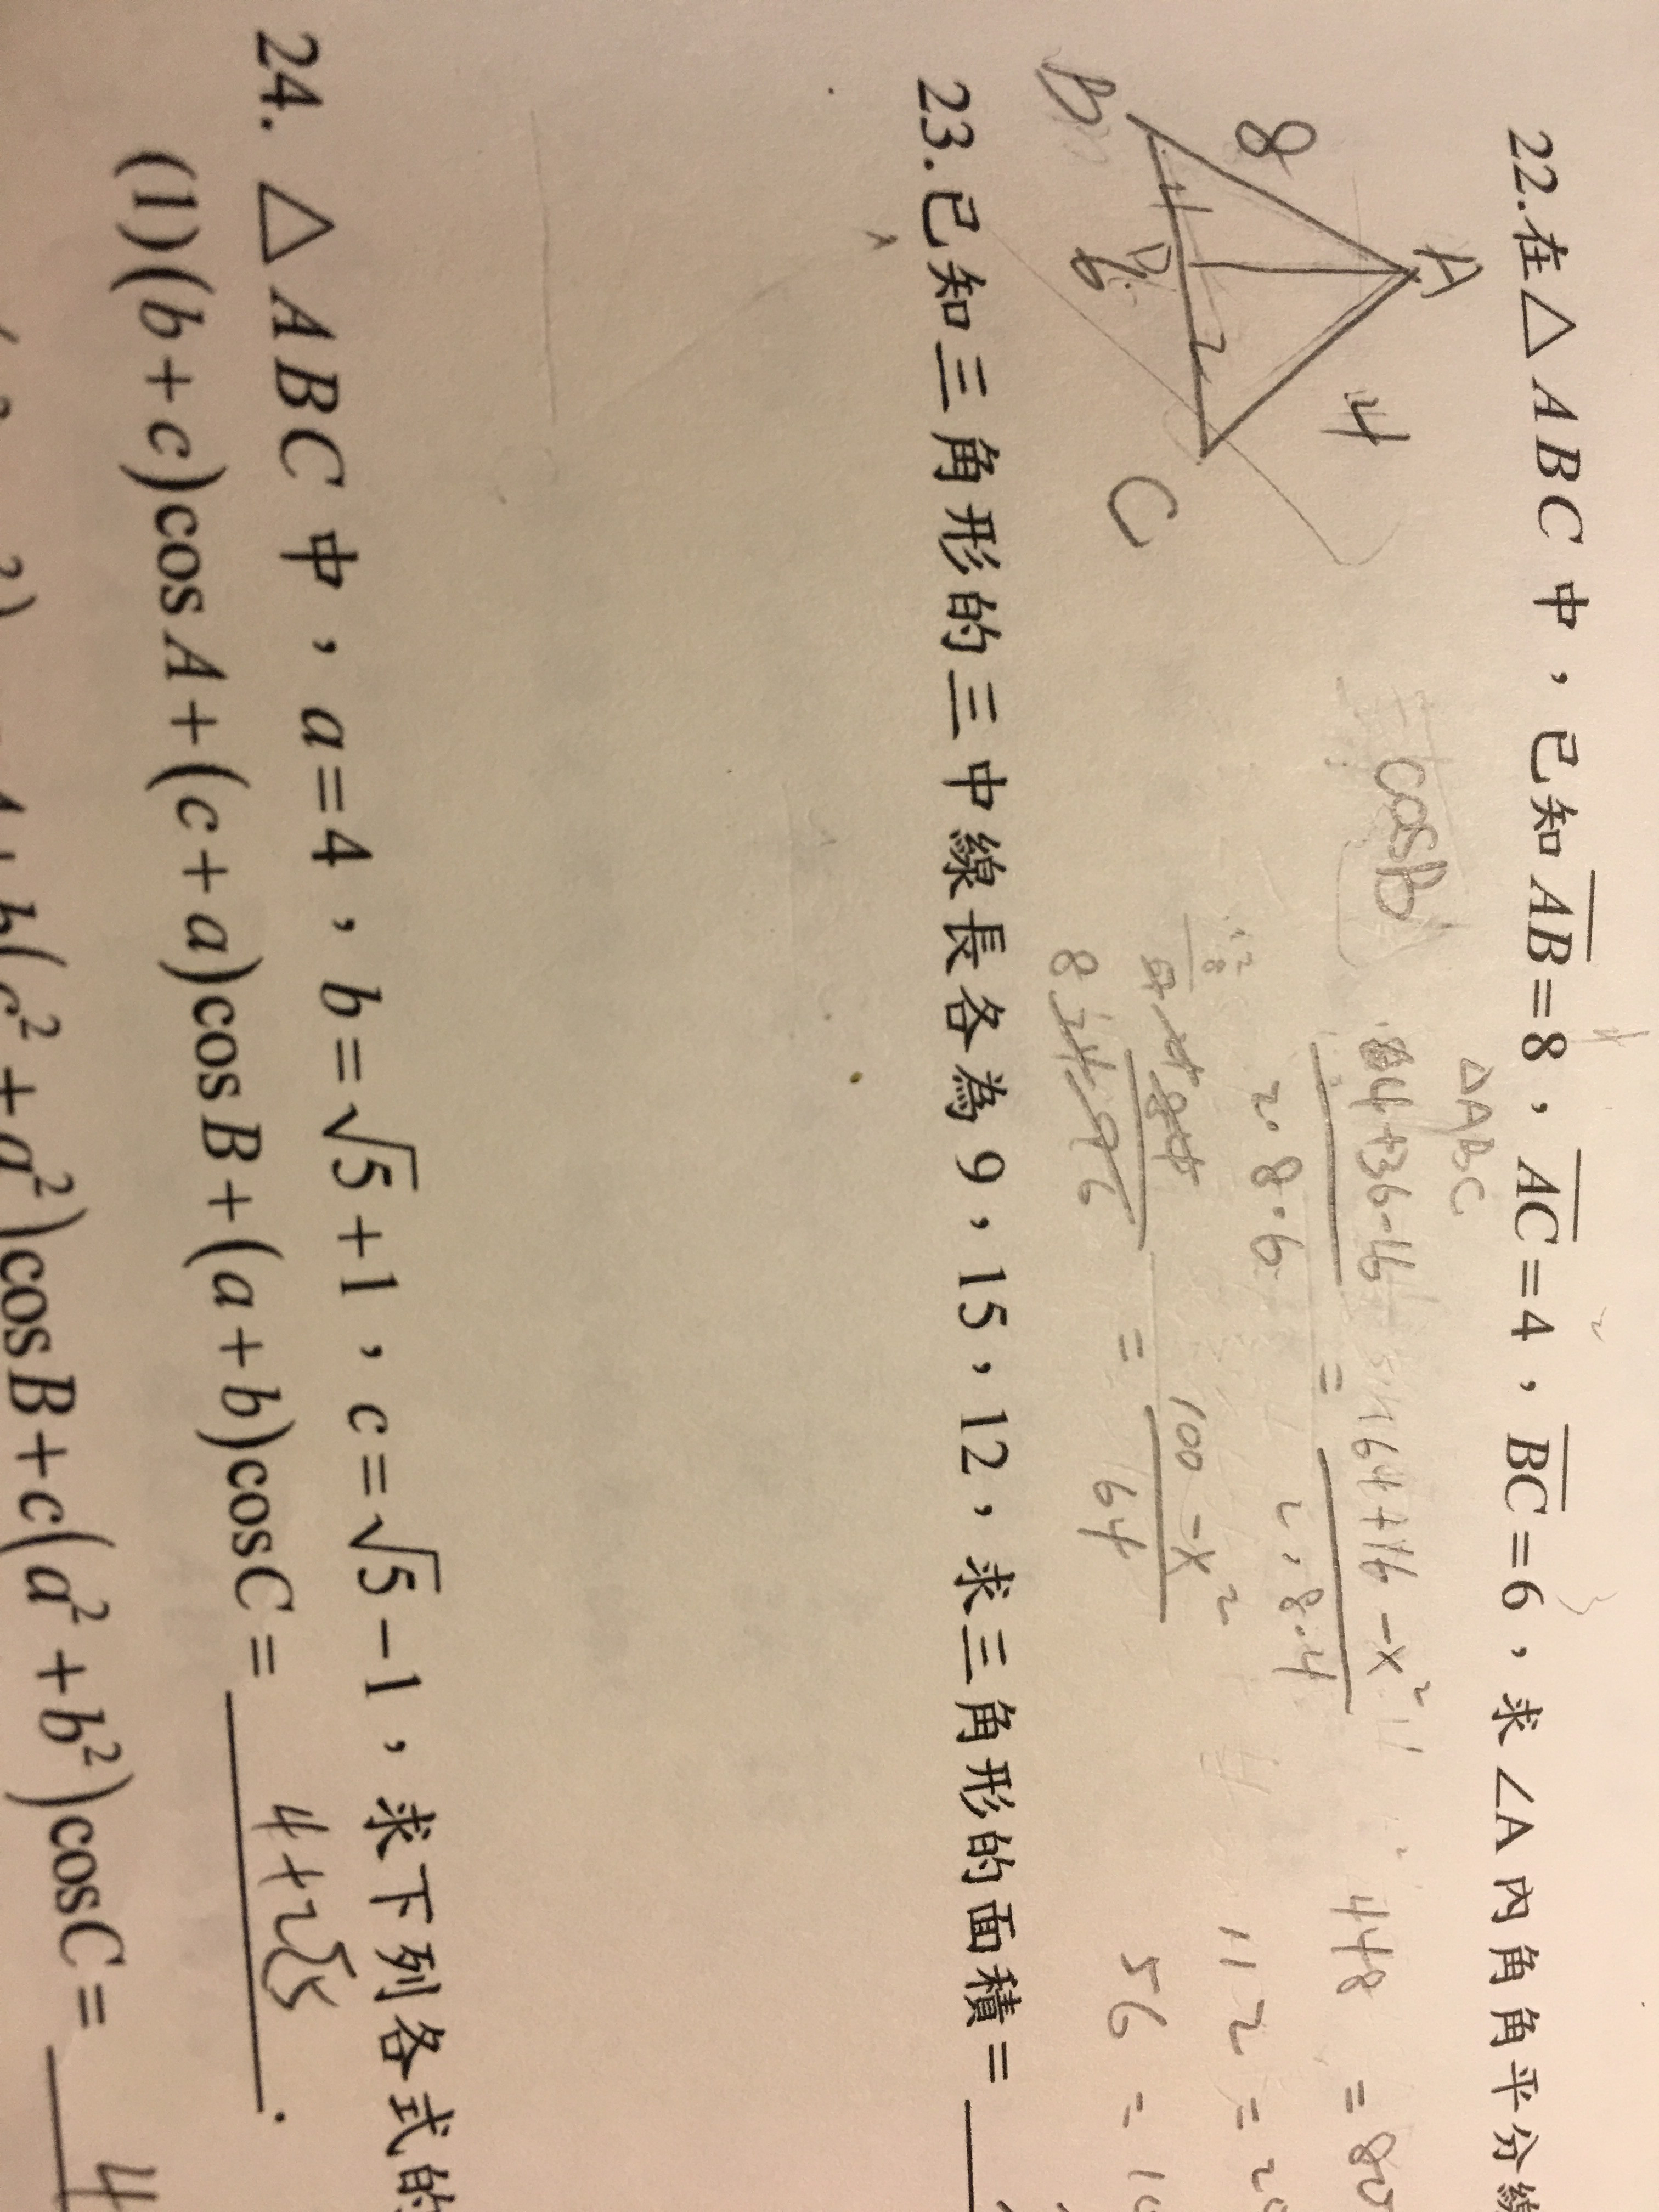 22.在△ABC中，已知AB=8，AC=4，BC=6，求∠A內角角平分線
△ABC
cosB
64+36-16
2·8·6
=
64+16-x²
2·8·4
=
100-x²
64
448 = 80
112 = 20
56 = 10
A
8
4
B
4
D
2
C
6
23.已知三角形的三中線長各為9，15，12，求三角形的面積=
24. △ABC中，a=4，b=√5+1，c=√5-1，求下列各式的
(1)(b+c)cosA+(c+a)cosB+(a+b)cosC= 4+2√5 .
b(c²+a²)cosB+c(a²+b²)cosC= 4